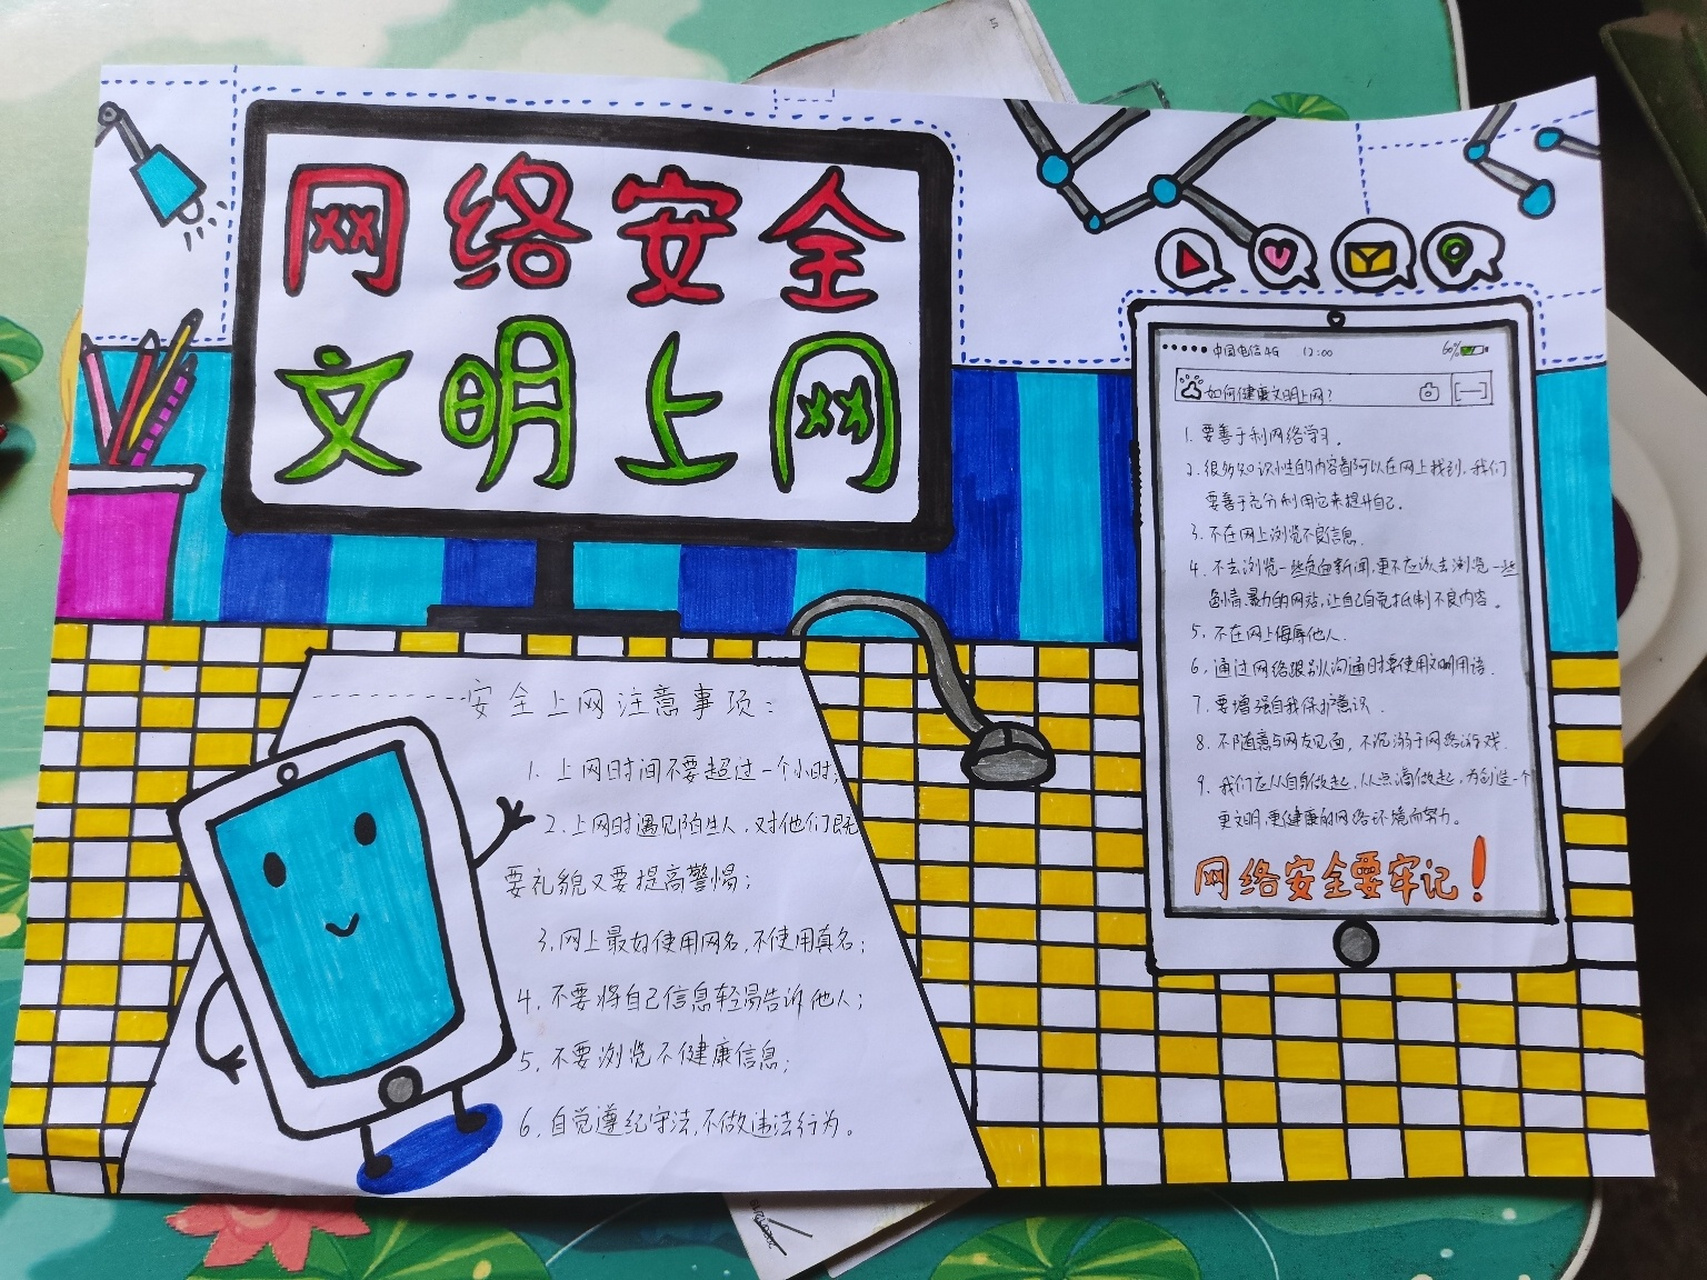 网络安全
文明上网
中国电信4G 12:00 60%
如何健康文明上网?
1. 要善于利网络学习.
2. 很多知识性的内容都可以在网上找到,我们
要善于充分利用它来提升自己.
3. 不在网上浏览不良信息.
4. 不去浏览一些负面新闻,更不应该去浏览一些
色情.暴力的网站,让自己自觉抵制不良内容。
5. 不在网上侮辱他人.
6. 通过网络跟别人沟通时要使用文明用语.
7. 要增强自我保护意识.
8. 不随意与网友见面,不沉溺于网络游戏.
9. 我们应从自身做起,从点滴做起,为创造一个
更文明,更健康的网络环境而努力。
网络安全要牢记!
安全上网注意事项:
1. 上网时间不要超过一个小时;
2. 上网时遇见陌生人,对他们既
要礼貌又要提高警惕;
3. 网上最好使用网名,不使用真名;
4. 不要将自己信息轻易告诉他人;
5. 不要浏览不健康信息;
6. 自觉遵纪守法,不做违法行为。